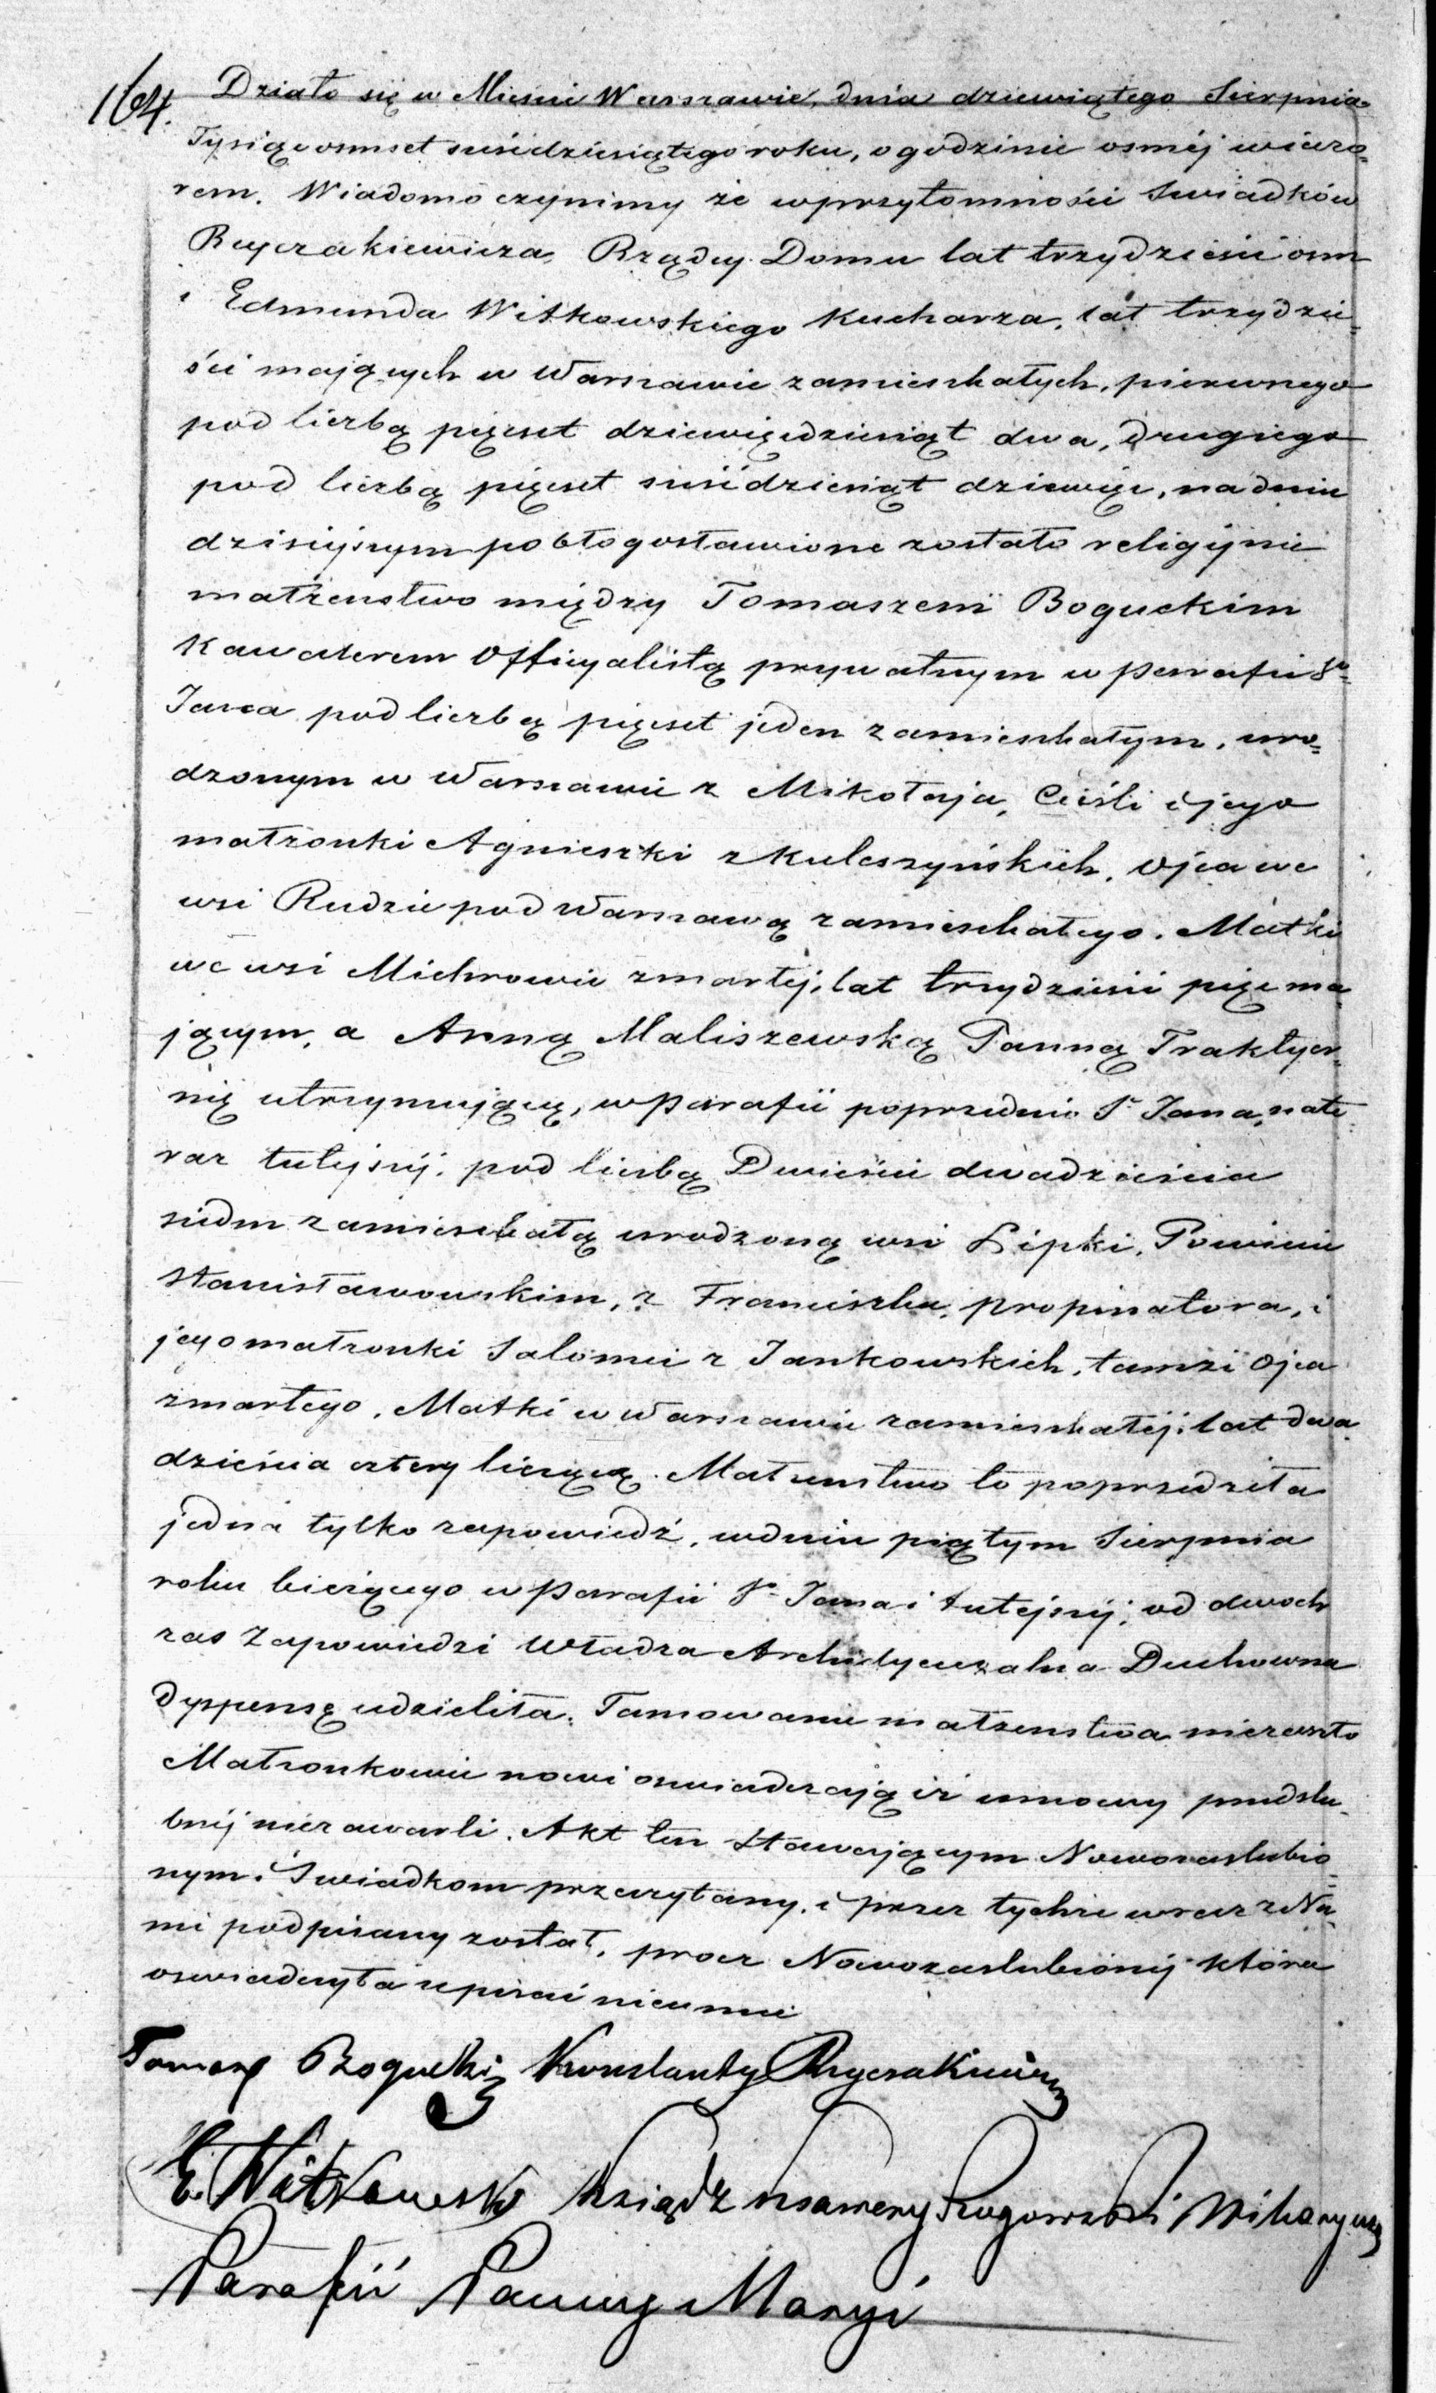 164.
Działo się w Mieście Warszawie, dnia dziewiątego Sierpnia
Tysiąc osmset sześćdziesiątego roku, o godzinie osmej wieczo-
rem. Wiadomo czynimy że w przytomności Świadków
Ryczakiewicza, Rządcy Domu lat trzydzieści osm
i Edmunda Witkowskiego Kucharza, lat trzydzie-
ści mających w Warszawie zamieszkałych, pierwszego
pod liczbą pięćset dziewięćdziesiąt dwa, drugiego
pod liczbą pięćset sześćdziesiąt dziewięć, na dniu
dzisiejszym pobłogosławione zostało religijnie
małżeństwo między Tomaszem Boguckim
Kawalerem Officyalistą prywatnym w Parafii Sgo
Jana pod liczbą pięćset jeden zamieszkałym, uro-
dzonym w Warszawie z Mikołaja, Cieśli i jego
małżonki Agnieszki z Kuleszyńskich, Ojca we
wsi Rudzie pod Warszawą zamieszkałego. Matki
we wsi Michrowie zmarłej, lat trzydzieści pięć ma-
jącym, a Anną Maliszewską Panną Traktyer-
nię utrzymującą, w Parafii poprzednio Sgo Jana, a te-
raz tutejszej, pod liczbą Dwieście dwadzieścia
siedm zamieszkałą urodzoną wsi Lipki, Powiecie
Stanisławowskim, z Franciszka, propinatora, i
jego małżonki Salomei z Jankowskich, tamże Ojca
zmarłego, Matki w Warszawie zamieszkałej, lat dwa-
dzieścia cztery liczącą. Małżeństwo to poprzedziła
jedna tylko zapowiedź, w dniu piątym Sierpnia
roku bieżącego w Parafii Sgo Jana i tutejszej, od dwoch
zas Zapowiedzi Władza Archidyecezalna Duchowna
Dyspensę udzieliła. Tamowanie małżenstwa nie zaszło
Małżonkowie nowi oswiadczają iż umowy przedślu-
bnej nie zawarli. Akt ten Stawającym Nowozaslubio-
nym i Swiadkom przeczytany, i przez tychże wraz z Na-
mi podpisany został, procz Nowozaslubionej która
oswiadczyła iż pisać nie umie
Tomasz Bogucki Konstanty Ryczakiewicz
E. Witkowski Ksiądz Ksawery Rogowski Wikaryusz
Parafii Panny Maryi